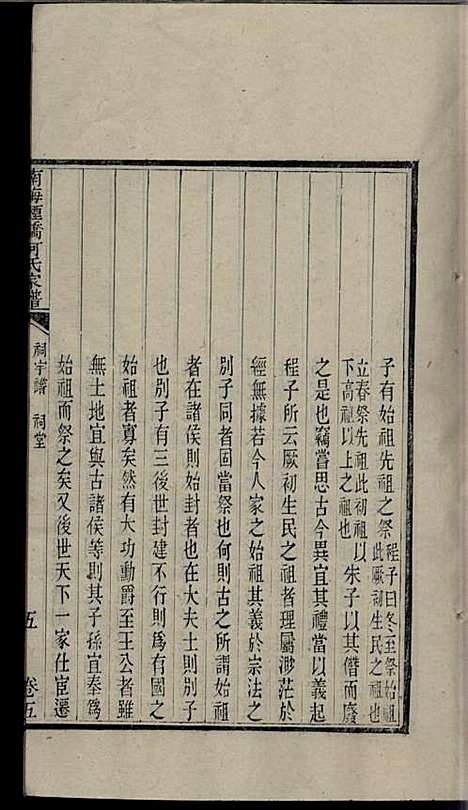 子有始祖先祖之祭程子曰冬至祭始祖此厥初生民之祖也
立春祭先祖此初祖以下高祖以上之祖也朱子以其僭而廢
之是也竊嘗思古今異宜其禮當以義起
程子所云厥初生民之祖者理屬渺茫於
經無據若今人家之始祖其義於宗法之
別子同者固當祭也何則古之所謂始祖
者在諸侯則始封者也在大夫士則別子
也別子有三後世封建不行則爲有國之
始祖者寡矣然有大功勳爵至王公者雖
無土地宜與古諸侯等則其子孫宜奉爲
始祖而祭之矣又後世天下一家仕宦遷
南海煙橋何氏家譜
祠宇譜 祠堂
五
卷五